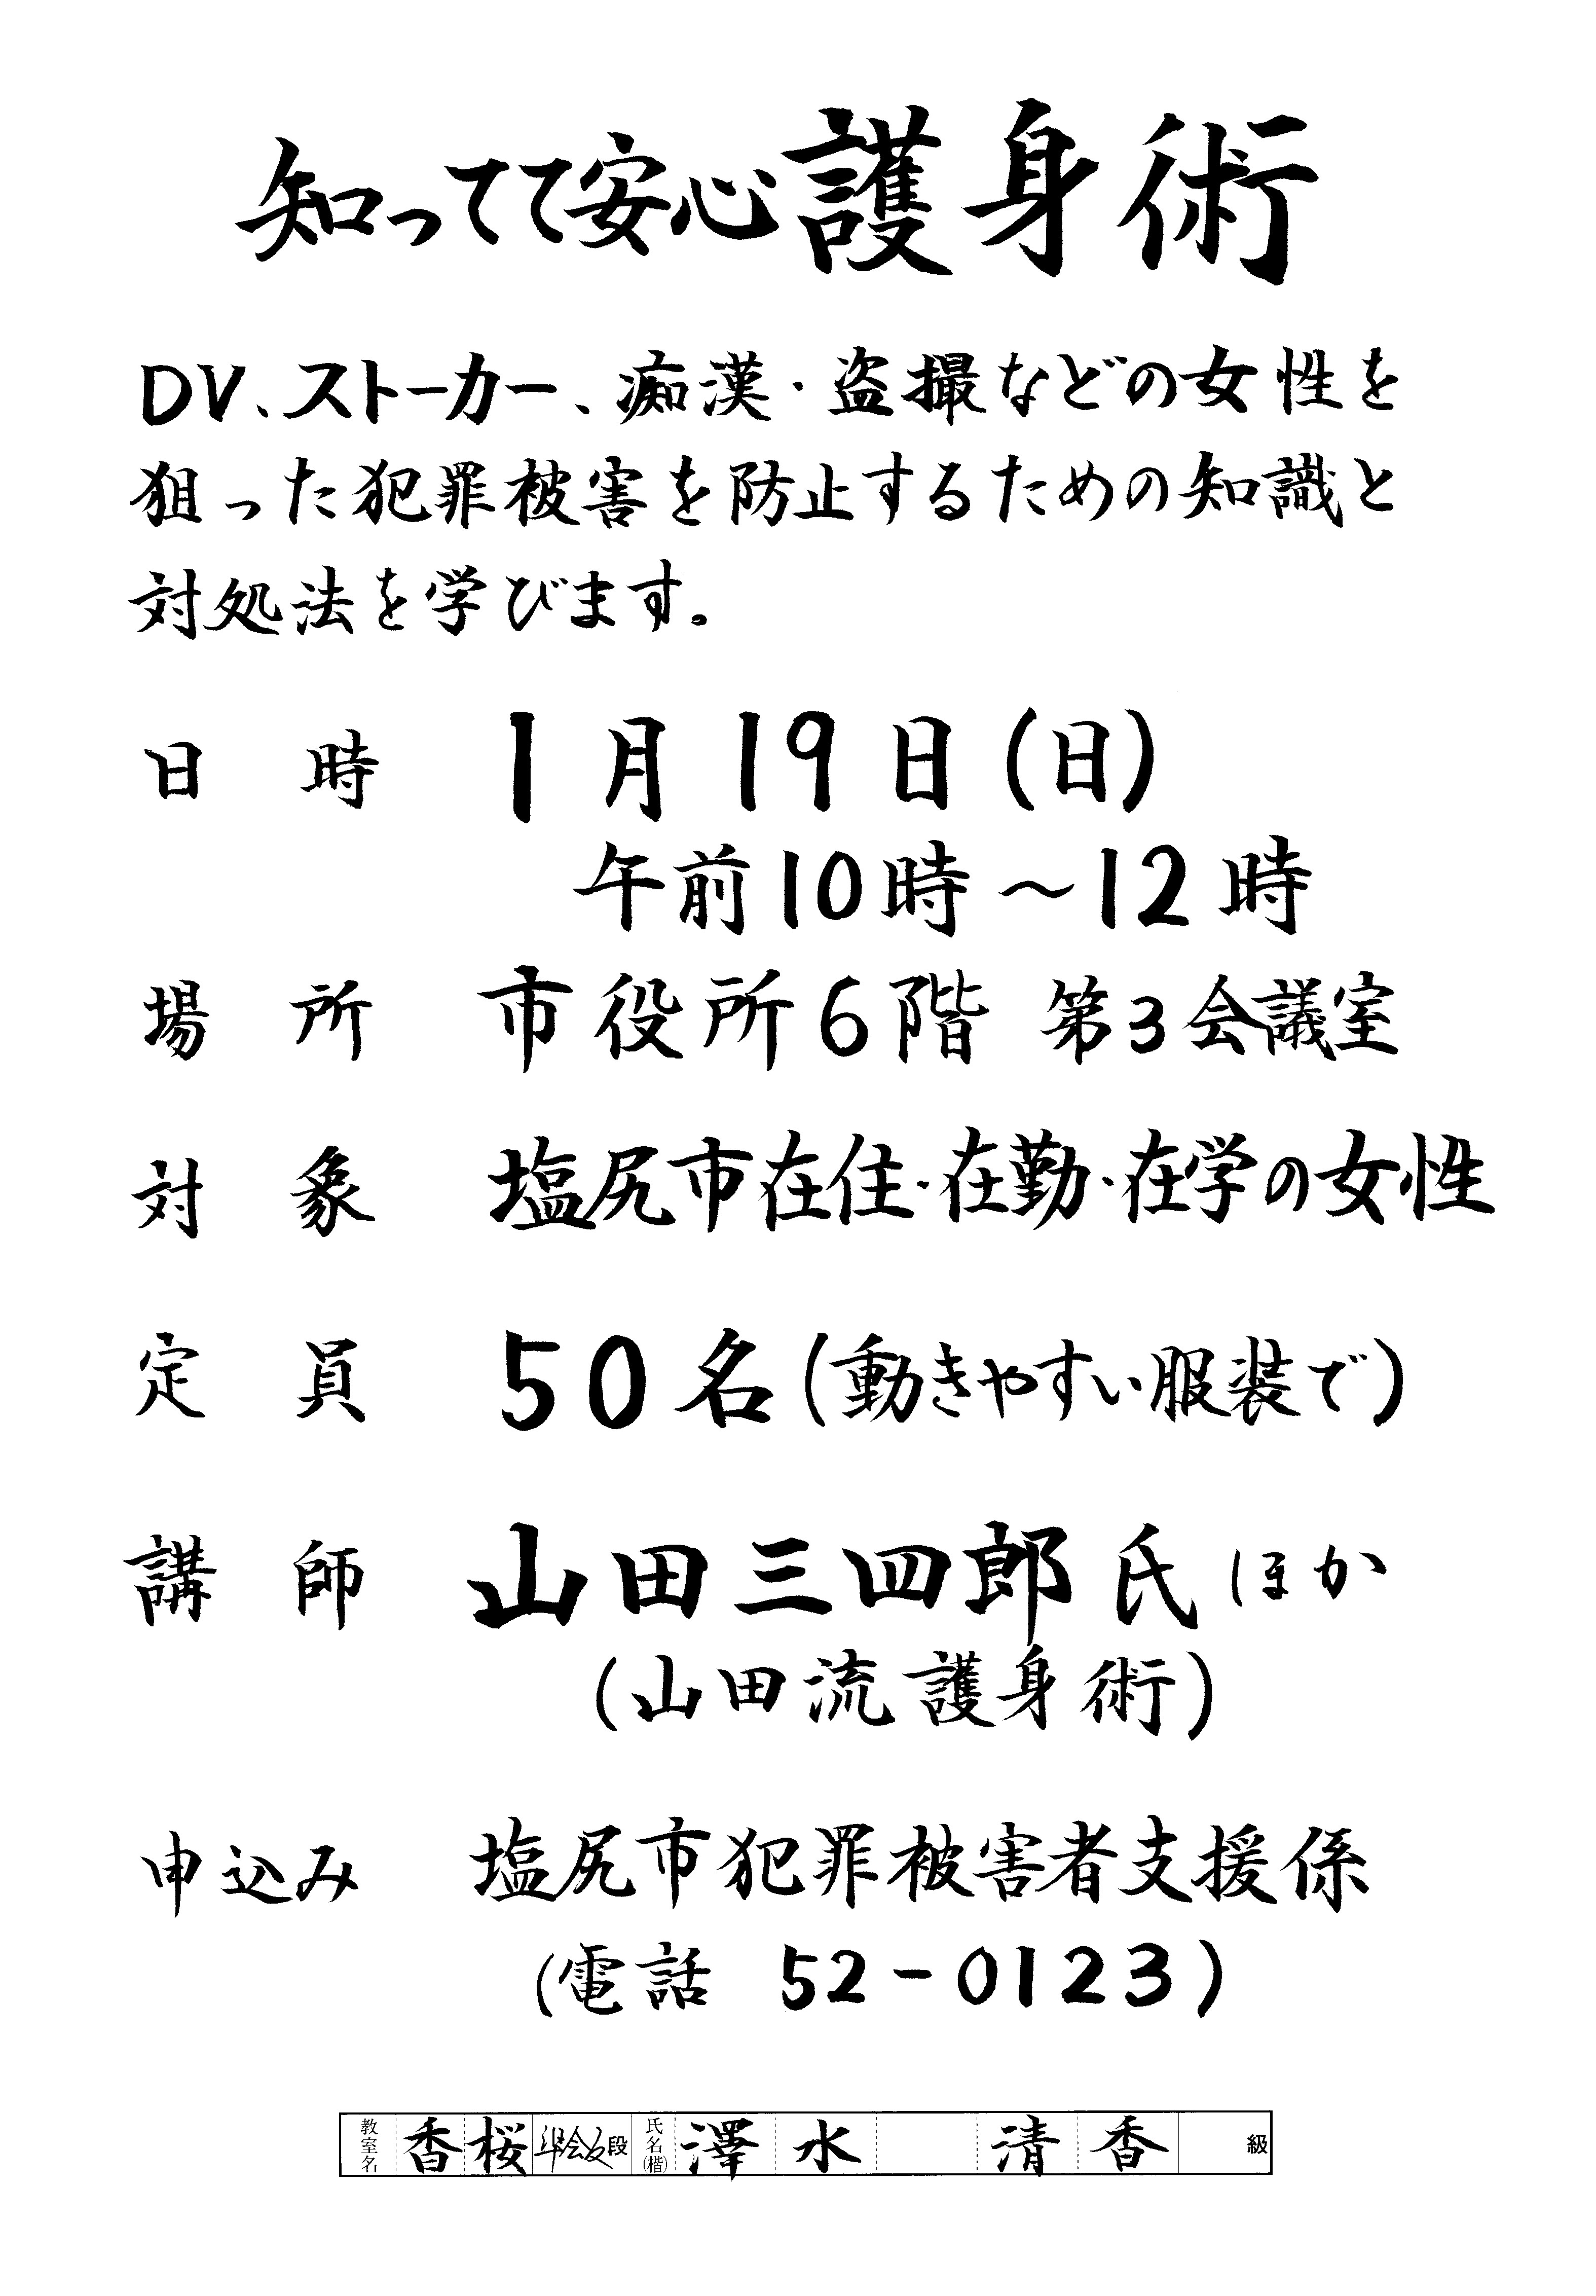 知ってて安心護身術
DV、ストーカー、痴漢・盗撮などの女性を
狙った犯罪被害を防止するための知識と
対処法を学びます。
日時 1月19日(日)
午前10時〜12時
場所 市役所6階 第3会議室
対象 塩尻市在住・在勤・在学の女性
定員 50名(動きやすい服装で)
講師 山田三四郎氏ほか
(山田流護身術)
申込み 塩尻市犯罪被害者支援係
(電話 52-0123)
教室名 香桜 段 氏名(楷) 澤水 清香 級